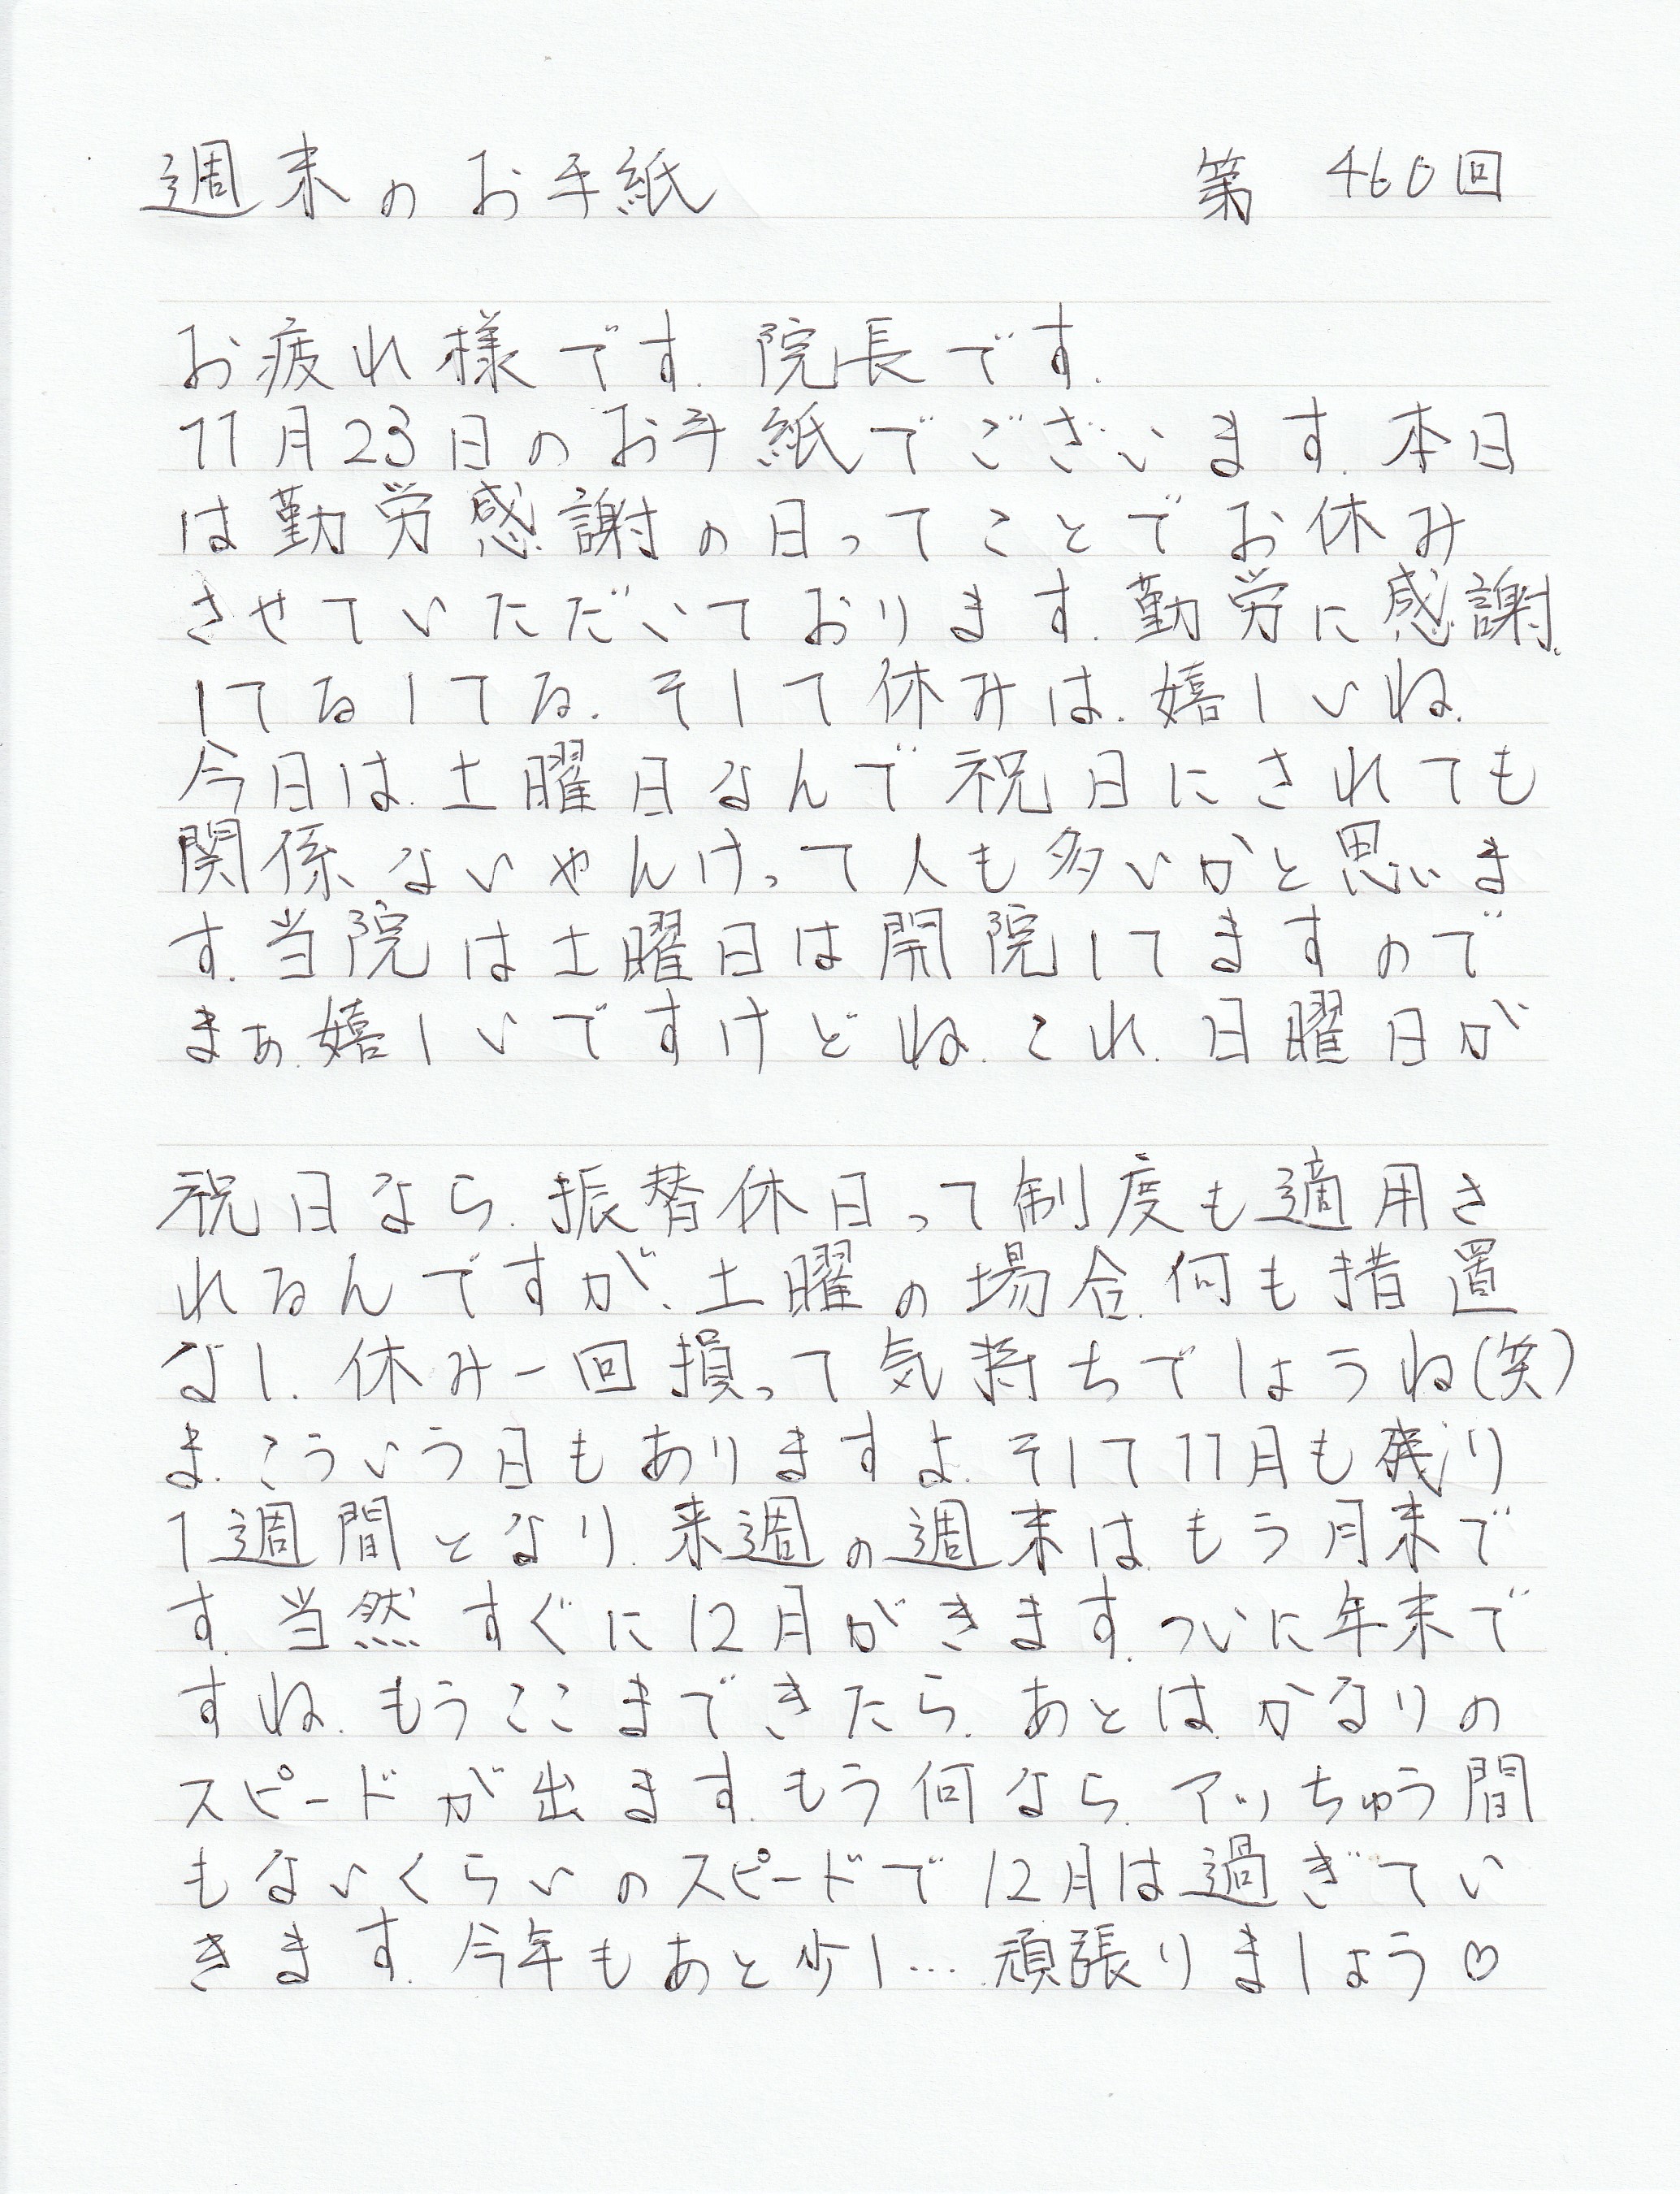 週末のお手紙 第 460回
お疲れ様です. 院長です.
11月23日のお手紙でございます. 本日
は勤労感謝の日ってことでお休み
させていただいております. 勤労に感謝.
してるしてる. そして休みは. 嬉しいね.
今日は. 土曜日なんで祝日にされても
関係ないやんけって人も多いかと思いま
す. 当院は土曜日は開院してますので
まぁ. 嬉しいですけどね. これ. 日曜日が
祝日なら. 振替休日って制度も適用さ
れるんですが、土曜の場合. 何も措置
なし. 休み一回損って気持ちでしょうね(笑)
ま. こういう日もありますよ. そして11月も残り
1週間となり. 来週の週末は. もう月末で
す. 当然 すぐに12月がきます. ついに年末で
すね. もうここまできたら. あとは. かなりの
スピードが出ます. もう何なら. アッちゅう間
もないくらいのスピードで12月は過ぎてい
きます. 今年もあと少し…. 頑張りましょう♡